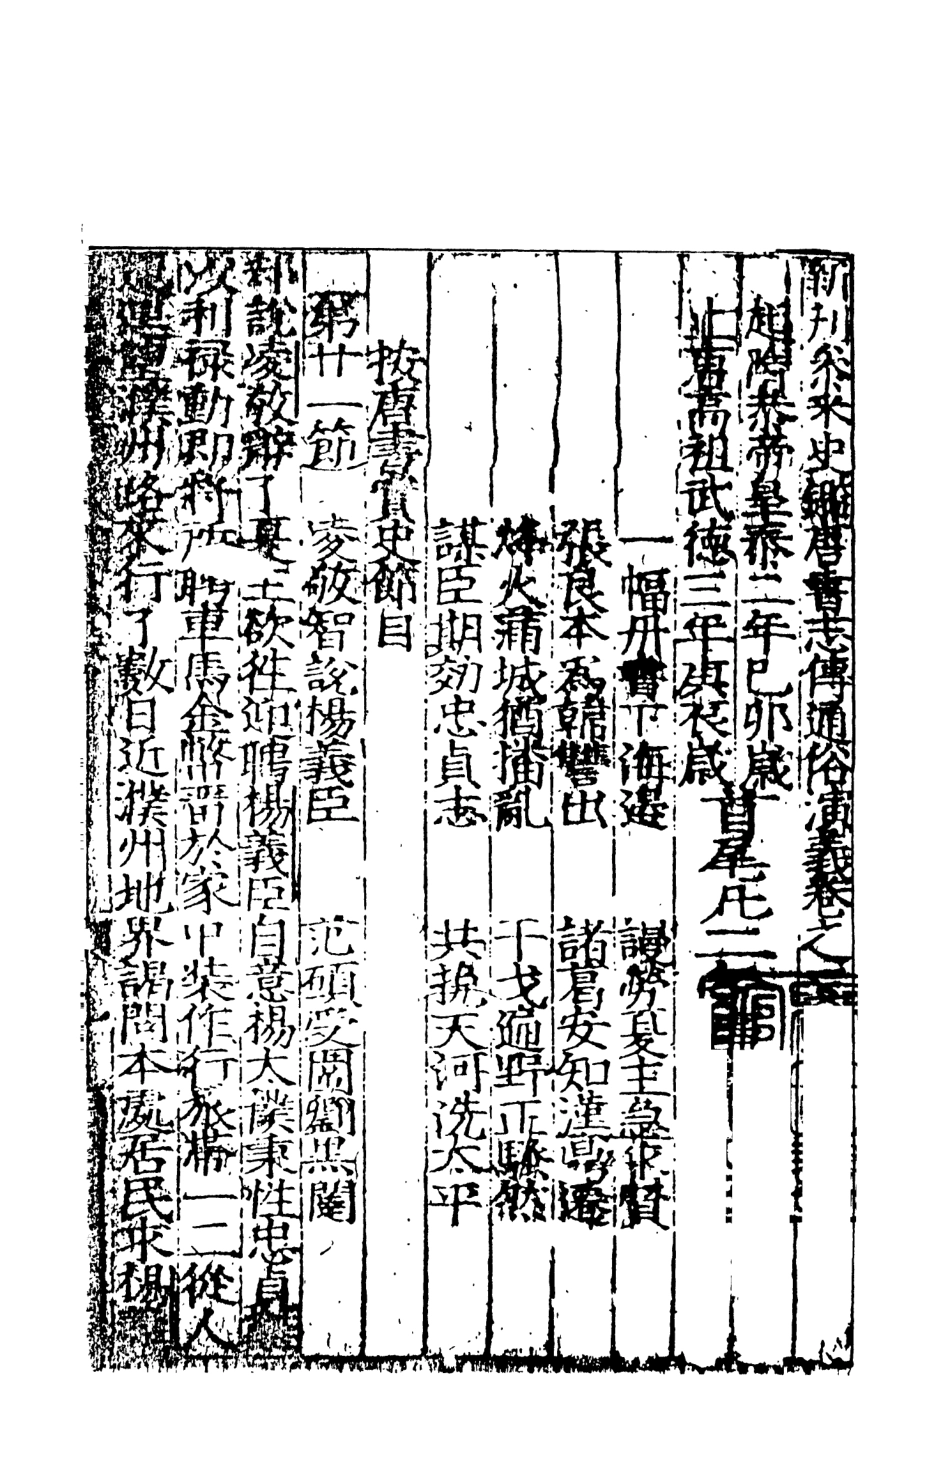 新刊參采史鑑唐書志傳通俗演義卷之三
起隋恭帝皇泰二年己卯歲
止唐高祖武德三年庚辰歲 首尾凡二年
一幅丹書下海邊 謾勞夏主急求賢
張良本為韓讐出 諸葛安知漢鼎遷
烽火滿城猶播亂 干戈遍野正騷然
謀臣期効忠貞志 共挽天河洗太平
按唐書實史節目
第廿一節 凌敬智説楊義臣 范碩受間劉黑闥
却說凌敬辭了夏主欲往迎聘楊義臣自意楊太僕秉性忠貞
以利祿動即將所聘車馬金幣留於家中裝作行旅帶一二從人
望濮州路來行了數日近濮州地界謁問本處居民求楊